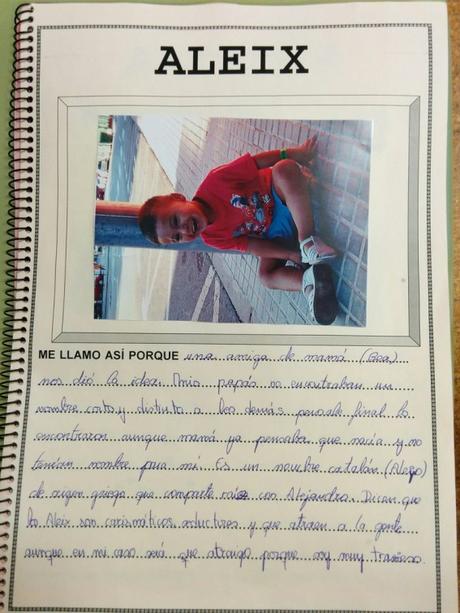 ALEIX
ME LLAMO ASÍ PORQUE una amiga de mamá (Bea)
nos dió la idea. Mis papás no encontraban un
nombre corto y distinto a los demás pero al final lo
encontraron aunque mamá ya pensaba que nacía y no
tenían nombre para mi. Es un nombre catalán
de origen griego que comparte raíz con Alejandra. Dicen que
los Aleix son carismáticos, seductores y que atraen a la gente
aunque en mi caso será que atraigo porque soy muy travieso.